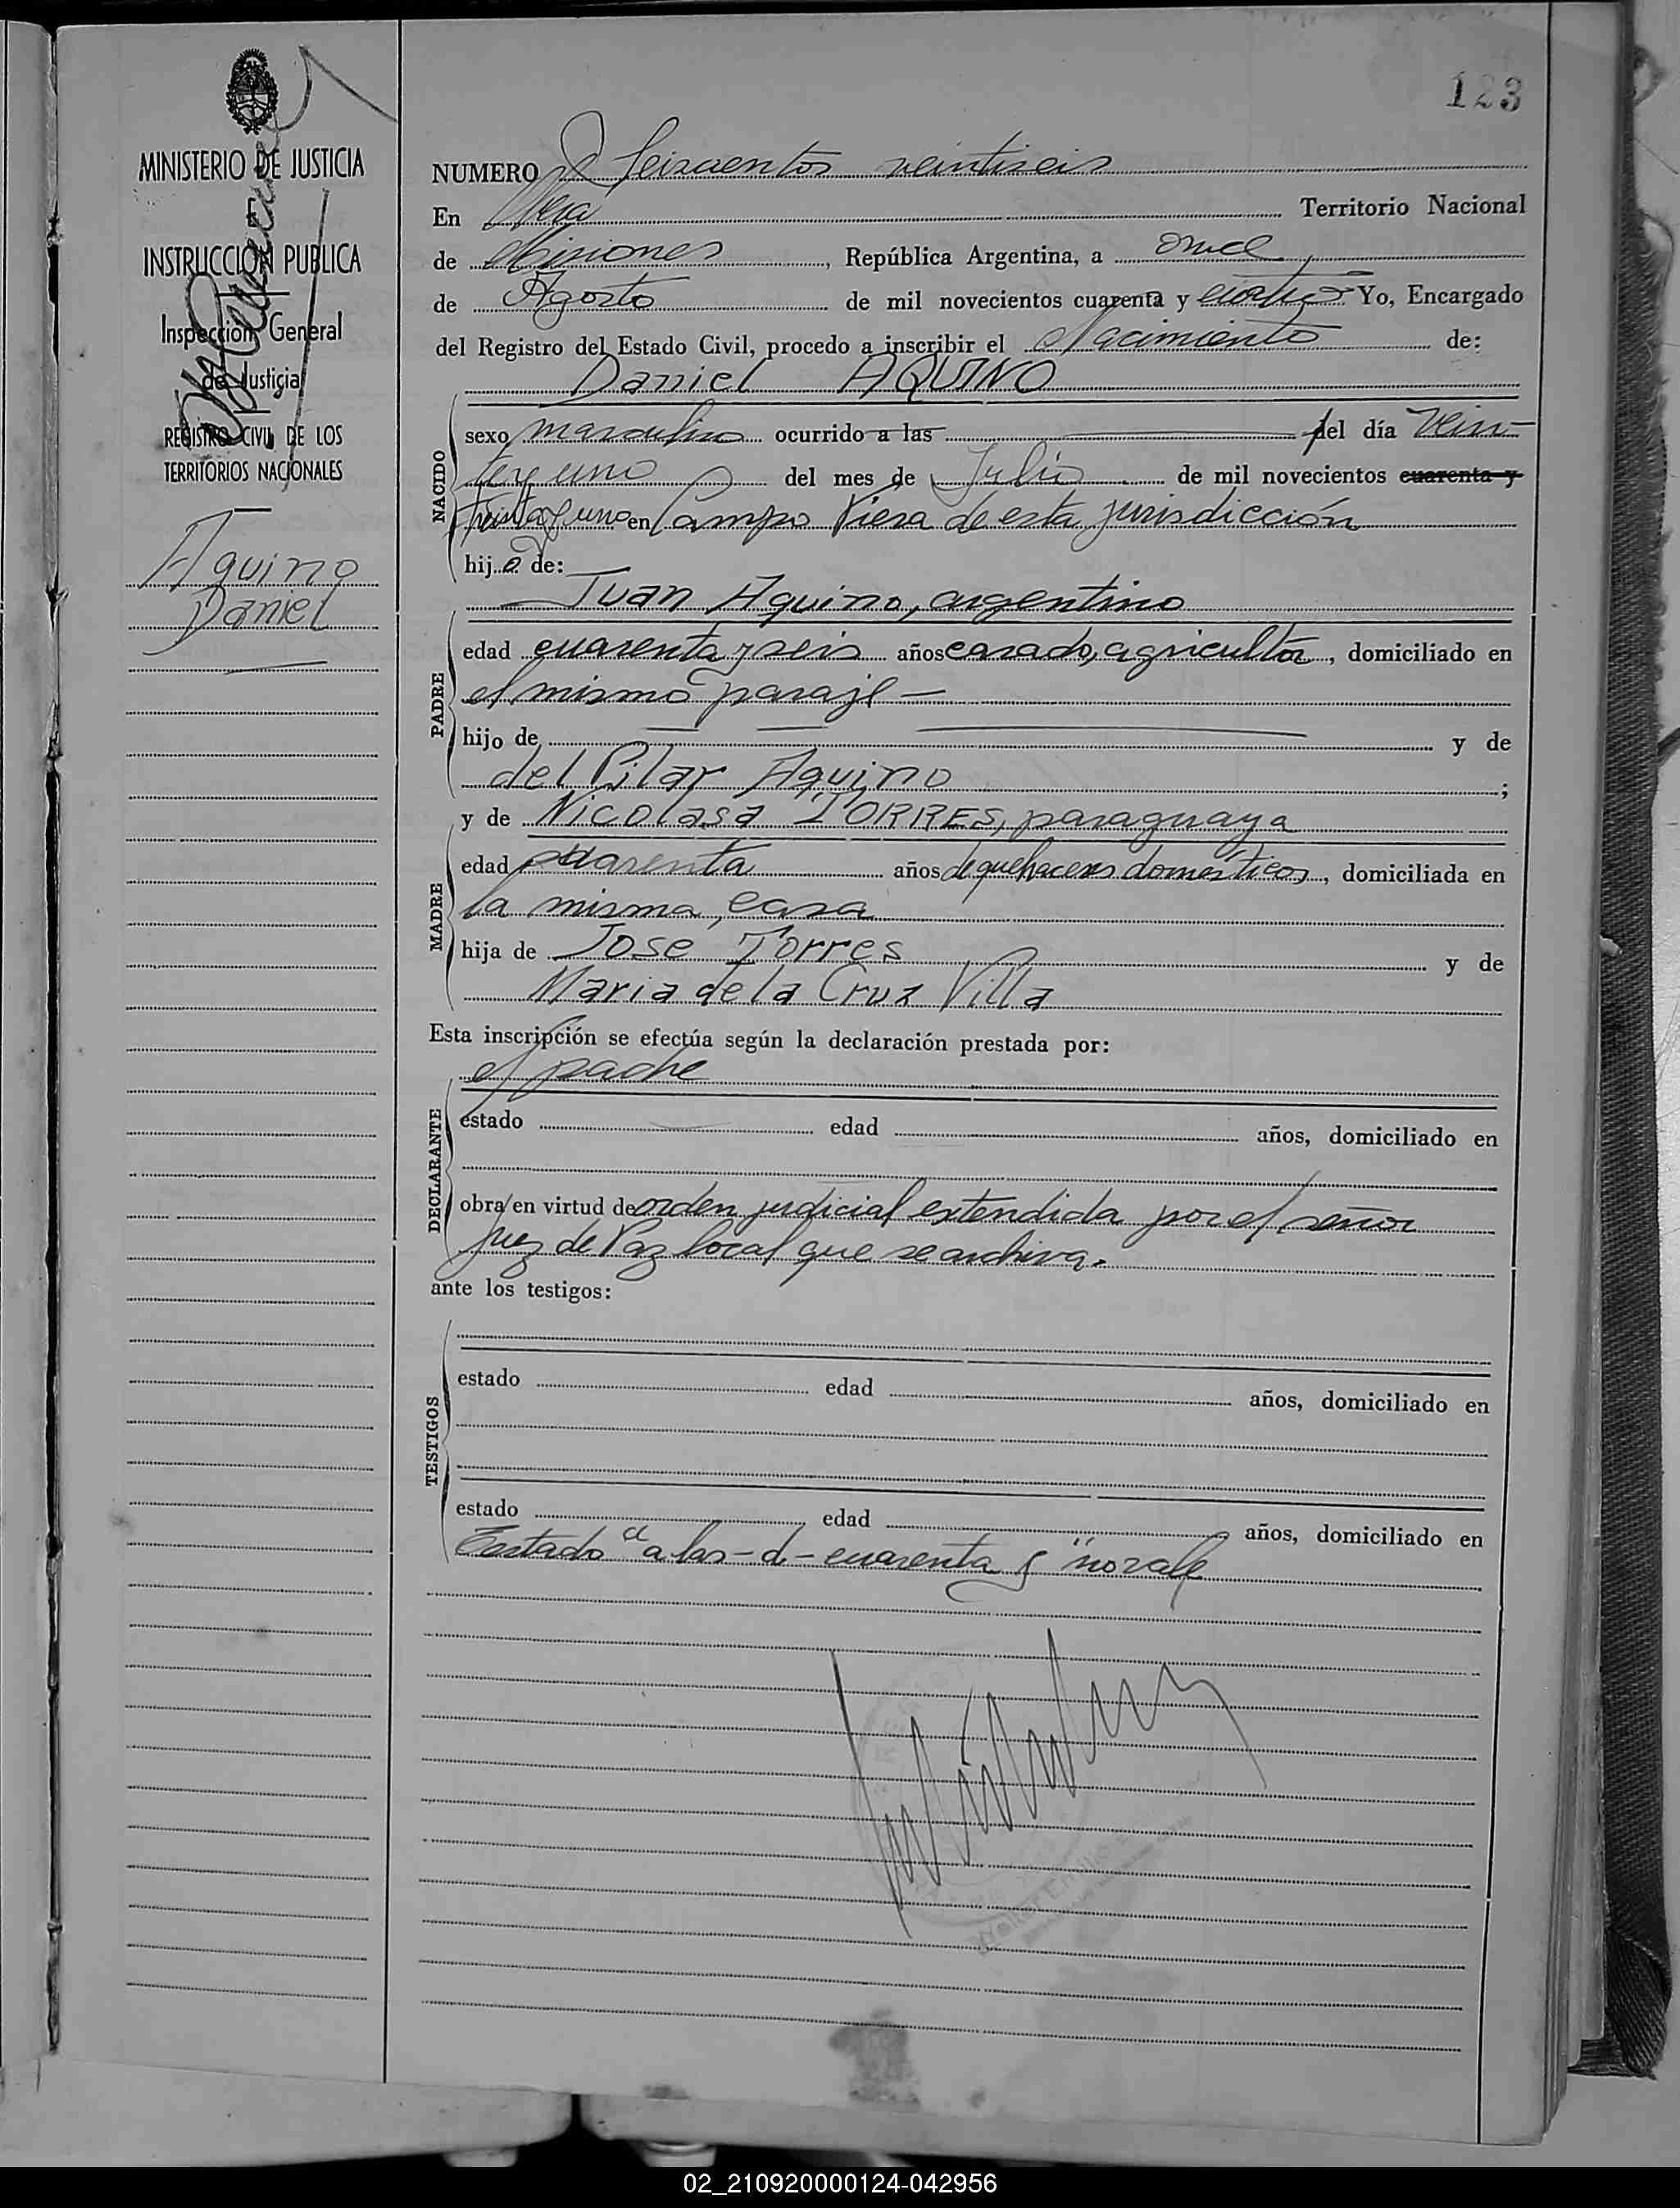 123
MINISTERIO DE JUSTICIA
E
INSTRUCCIÓN PUBLICA
Inspección General
de Justicia
REGISTRO CIVIL DE LOS
TERRITORIOS NACIONALES
Aquino
Daniel
NUMERO Seiscientos veintiseis
En Territorio Nacional
de Misiones, República Argentina, a once
de Agosto de mil novecientos cuarenta y cuatro Yo, Encargado
del Registro del Estado Civil, procedo a inscribir el Nacimiento de:
Daniel AQUINO
NACIDO
sexo masculino ocurrido a las del día Vein-
te y uno del mes de Julio de mil novecientos cuarenta y
treinta y uno en Campo Viera de esta jurisdicción
hijo de:
Juan Aquino, argentino
PADRE
edad cuarenta y seis años casado, agricultor, domiciliado en
el mismo paraje
hijo de y de
del Pilar Aquino ;
y de Nicolasa TORRES, paraguaya
MADRE
edad cuarenta años de quehaceres domésticos, domiciliada en
la misma casa
hija de Jose Torres y de
Maria de la Cruz Villa
Esta inscripción se efectúa según la declaración prestada por:
el padre
DECLARANTE
estado edad años, domiciliado en
obra en virtud de orden judicial extendida por el señor
Juez de Paz local que se archiva.
ante los testigos:
TESTIGOS
estado edad años, domiciliado en
estado edad años, domiciliado en
Testado "a las - d - cuarenta y" no vale
02_210920000124-042956